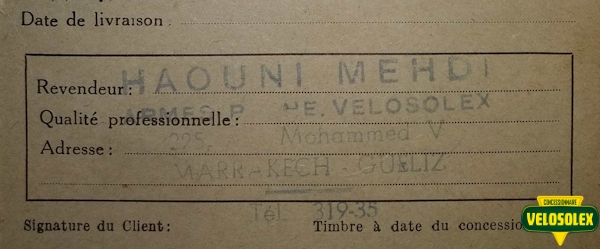 Date de livraison :
HAOUNI MEHDI
Revendeur :
VELOSOLEX
Qualité professionnelle :
225, Mohammed V
Adresse :
MARRAKECH - GUELIZ
Tél 319-35
Signature du Client :
Timbre à date du concession
CONCESSIONNAIRE
VELOSOLEX